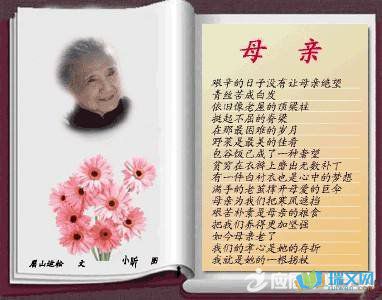 母 亲
艰辛的日子没有让母亲绝望
青丝苦成白发
依旧像老屋的顶梁柱
挺起不屈的脊梁
在那最困难的岁月
野菜是最美的佳肴
包谷饭已成了一种奢望
贫穷在衣裤上磨出无数补丁
有一件白衬衣也是心中的梦想
满手的老茧撑开母爱的巨伞
母亲为我们把寒风遮挡
艰苦朴素是母亲的粮食
把我们养得更加坚强
如今母亲老了
我们的孝心是她的存折
我就是她的一根拐杖
眉山 文 小昕 图
瑞文网